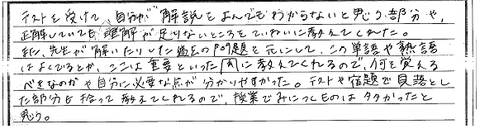 テストを受けて、自分が解説をよんでもわからないと思う部分や、
正解していても理解が足りないところをていねいに教えてくれた。
また、先生が解いたりした過去の問題を元にして、この単語や熟語
はよくでるとか、ここは重要といった風に教えてくれるので、何を覚える
べきなのかや自分に必要な点が分かりやすかった。テストや宿題で見落とし
た部分を拾って教えてくれるので、授業でみにつくものは多かったと
思う。